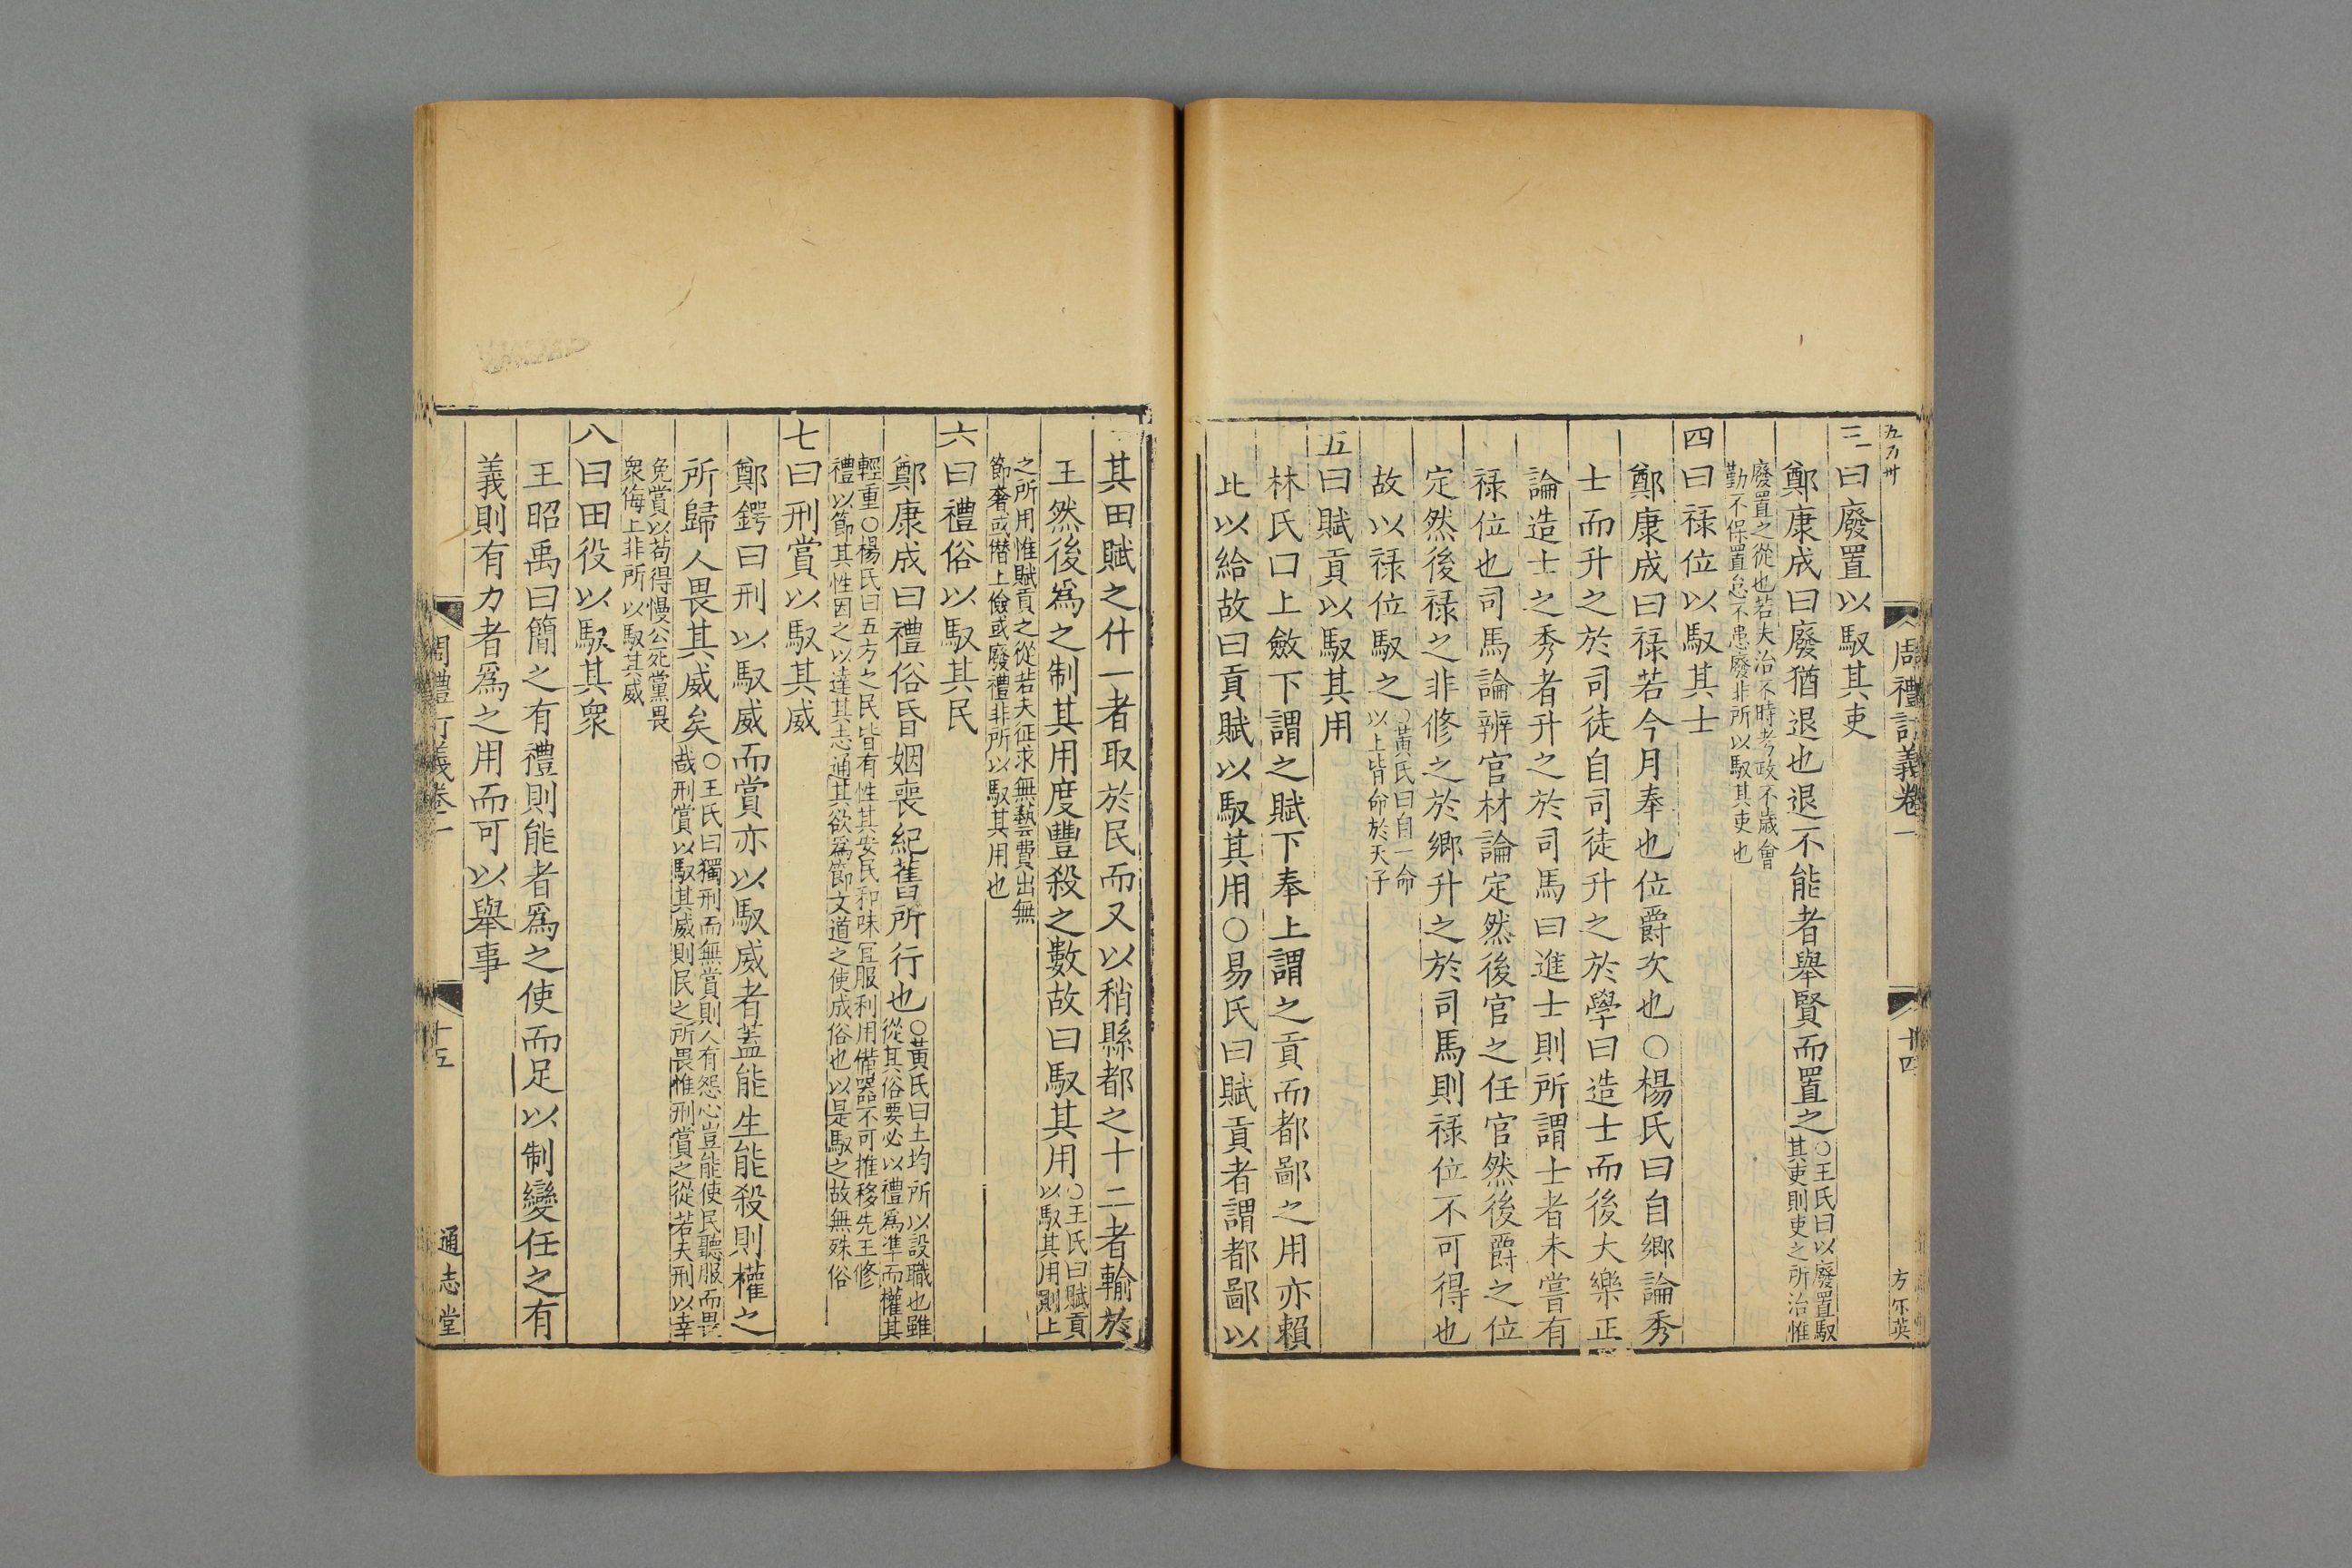 五九卅
周禮訂義卷一
十四
方尓英
三曰廢置以馭其吏
鄭康成曰廢猶退也退不能者舉賢而置之○王氏曰以廢置馭
其吏則吏之所治惟
廢置之從也若夫治不時考政不歲會
勤不保置怠不患廢非所以馭其吏也
四曰禄位以馭其士
鄭康成曰禄若今月奉也位爵次也○楊氏曰自鄉論秀
士而升之於司徒自司徒升之於學曰造士而後大樂正
論造士之秀者升之於司馬曰進士則所謂士者未嘗有
禄位也司馬論辨官材論定然後官之任官然後爵之位
定然後禄之非修之於鄉升之於司馬則禄位不可得也
故以禄位馭之○黃氏曰自一命
以上皆命於天子
五曰賦貢以馭其用
林氏曰上斂下謂之賦下奉上謂之貢而都鄙之用亦賴
此以給故曰貢賦以馭其用○易氏曰賦貢者謂都鄙以
其田賦之什一者取於民而又以稍縣都之十二者輸於
王然後爲之制其用度豐殺之數故曰馭其用○王氏曰賦貢
以馭其用則上
之所用惟賦貢之從若夫征求無藝費出無
節奢或僭上儉或廢禮非所以馭其用也
六曰禮俗以馭其民
鄭康成曰禮俗昏姻喪紀舊所行也○黃氏曰土均所以設職也雖
從其俗要必以禮爲準而權其
輕重○楊氏曰五方之民皆有性其安民和味宜服利用備器不可推移先王修
禮以節其性因之以達其志通其欲爲節文道之使成俗也以是馭之故無殊俗
七曰刑賞以馭其威
鄭鍔曰刑以馭威而賞亦以馭威者蓋能生能殺則權之
所歸人畏其威矣○王氏曰獨刑而無賞則人有怨心豈能使民聽服而畏
哉刑賞以馭其威則民之所畏惟刑賞之從若夫刑以幸
免賞以苟得慢公死黨畏
衆侮上非所以馭其威
八曰田役以馭其衆
王昭禹曰簡之有禮則能者爲之使而足以制變任之有
義則有力者爲之用而可以舉事
周禮訂義卷一
十五
通志堂